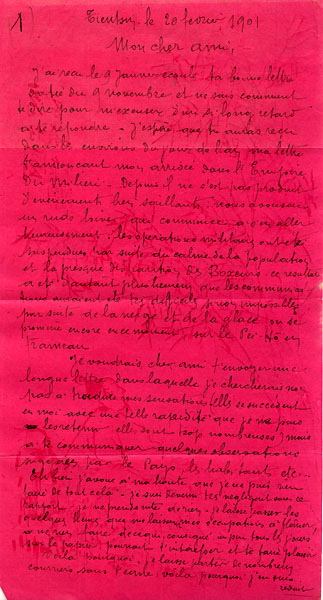 1)
Tientsin, le 20 février 1901
Mon cher ami,
J'ai reçu le 9 Janvier écoulé ta bonne lettre
datée du 9 novembre et ne sais comment
te dire pour m'excuser d'un si long retard
à te répondre. J'espère que tu auras reçu
dans les environs du jour de l'an, ma lettre
t'annonçant mon arrivée dans l'Empire
Du Milieu. Depuis il ne s'est pas produit
d'évènement bien saillants, nous avons eu
un rude hiver qui commence à s'en aller
heureusement; les opérations militaires ont été
suspendues par suite du calme de la population
et la presque disparition des Boxeurs; ce résultat
a été d'autant plus heureux que les communica-
tions auraient été très difficiles sinon impossibles
par suite de la neige et de la glace on se
promène encore en ce moment, sur le Peï-Hô en
traineau.
Je voudrais cher ami t'envoyer une
longue lettre dans laquelle je chercherais
pas à traduire mes sensations elles se succèdent
en moi avec une telle rapidité que je ne puis
les retenir elles sont trop nombreuses, mais
à te communiquer quelques observations
sur le Pays, les hab. tant etc.
Eh bien j'avoue à ma honte que je ne puis rien
faire de tout cela. Je suis devenu très négligent sous ce
rapport. Je ne prends note de rien. Je laisse passer les
quelques heures que me laissent mes occupations à flâner,
à ne rien faire; ce qui, consigné un peu tous les jours
sur le papier pourrait t'intéresser et te faire plaisir
Voilà pourquoi je laisse partir de nombreux
courriers sans t'écrire voilà pourquoi j'en suis
réduit